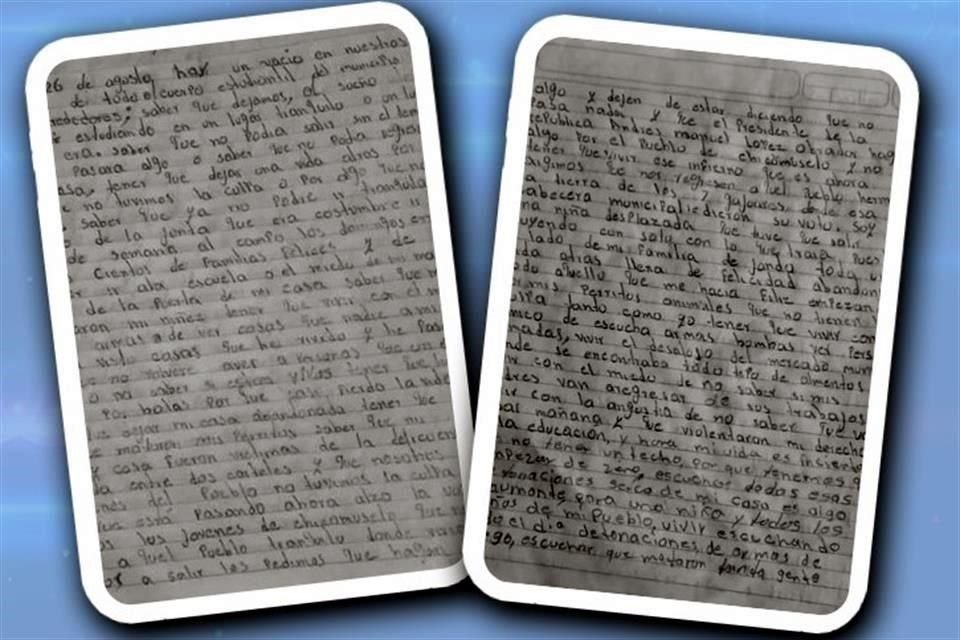 26 de agosto, hay un vacio en nuestros
de todo el cuerpo estudiantil del municipio
rededores, saber que dejamos, el sueño
estudiando en un lugar tranquilo o un lu
era. saber que no podia salir sin el tem
pasara algo o saber que no podia regresar
asa, tener que dejar una vida atras por
no tuvimos la culpa o por algo que no
saber que ya no podre ir tranquila
de la tienda que era costumbre ir
de semana al campo los domingos era
Cientos de Familias Felices y de
ir ala escuela o el miedo de mi ma
de la puerta de mi casa saber que m
aron mi niñez tener que vivir con el m
armas o de ver cosas que nadie a mi
visto cosas que he vivido y he pasa
no volvere aver a personas que
o no saber si estan vivos tener que
por balas por que casi pierdo la vida
que dejar mi casa abandonada tener que
mataron mis perritos saber que mi
y casa fueron victimas de la delicuen
entre dos carteles y que nosotros
nes del Pueblo no tuvimos la culpa
que está pasando ahora alzo la voz
os los jovenes de chicomuselo que
a quel Pueblo tranquilo donde
a salir les pedimos que hagan
algo y dejen de estar diciendo que no
pasa nada y que el Presidente de la
republica Andres manuel Lopez obrador haga
algo por el pueblo de chicomuselo y no
tener que vivir ese infierno que es ahora
que nos regresen a quel pueblo herm
la tierra de los 7 gajoucos, donde esa
abecera municipal le dieron su voto. Soy
una niña desplazada que tuve que salir
uyendo con solo con lo que traia pues
lado de mi Familia dejando toda u
vida atras llena de Felicidad abandon
do aquello que me hacia Feliz empezan
or mis perritos animales que no tienen
culpa tanto como yo tener que vivir con
nico de escucha armas bombas ver pers
madas, vivir el desalojo del mercado muni
nde se encontraba todo tipo de alimentos
ir con el miedo de no saber si mis
dres van aregresar de sus trabajos
ir con la angustia de no saber que va
par mañana y que violentaron mi derecho
la educacion, y hora mi vida es incierto
no tener un techo, por que tenemos q
mpezar de zero, escuchar todas esas
tonaciones serca de mi casa es algo
aumante para una niño y todos los
ños de mi pueblo, vivir escuchando
do el dia detonaciones de armas de
ego, escuchar que mataron tanta gente